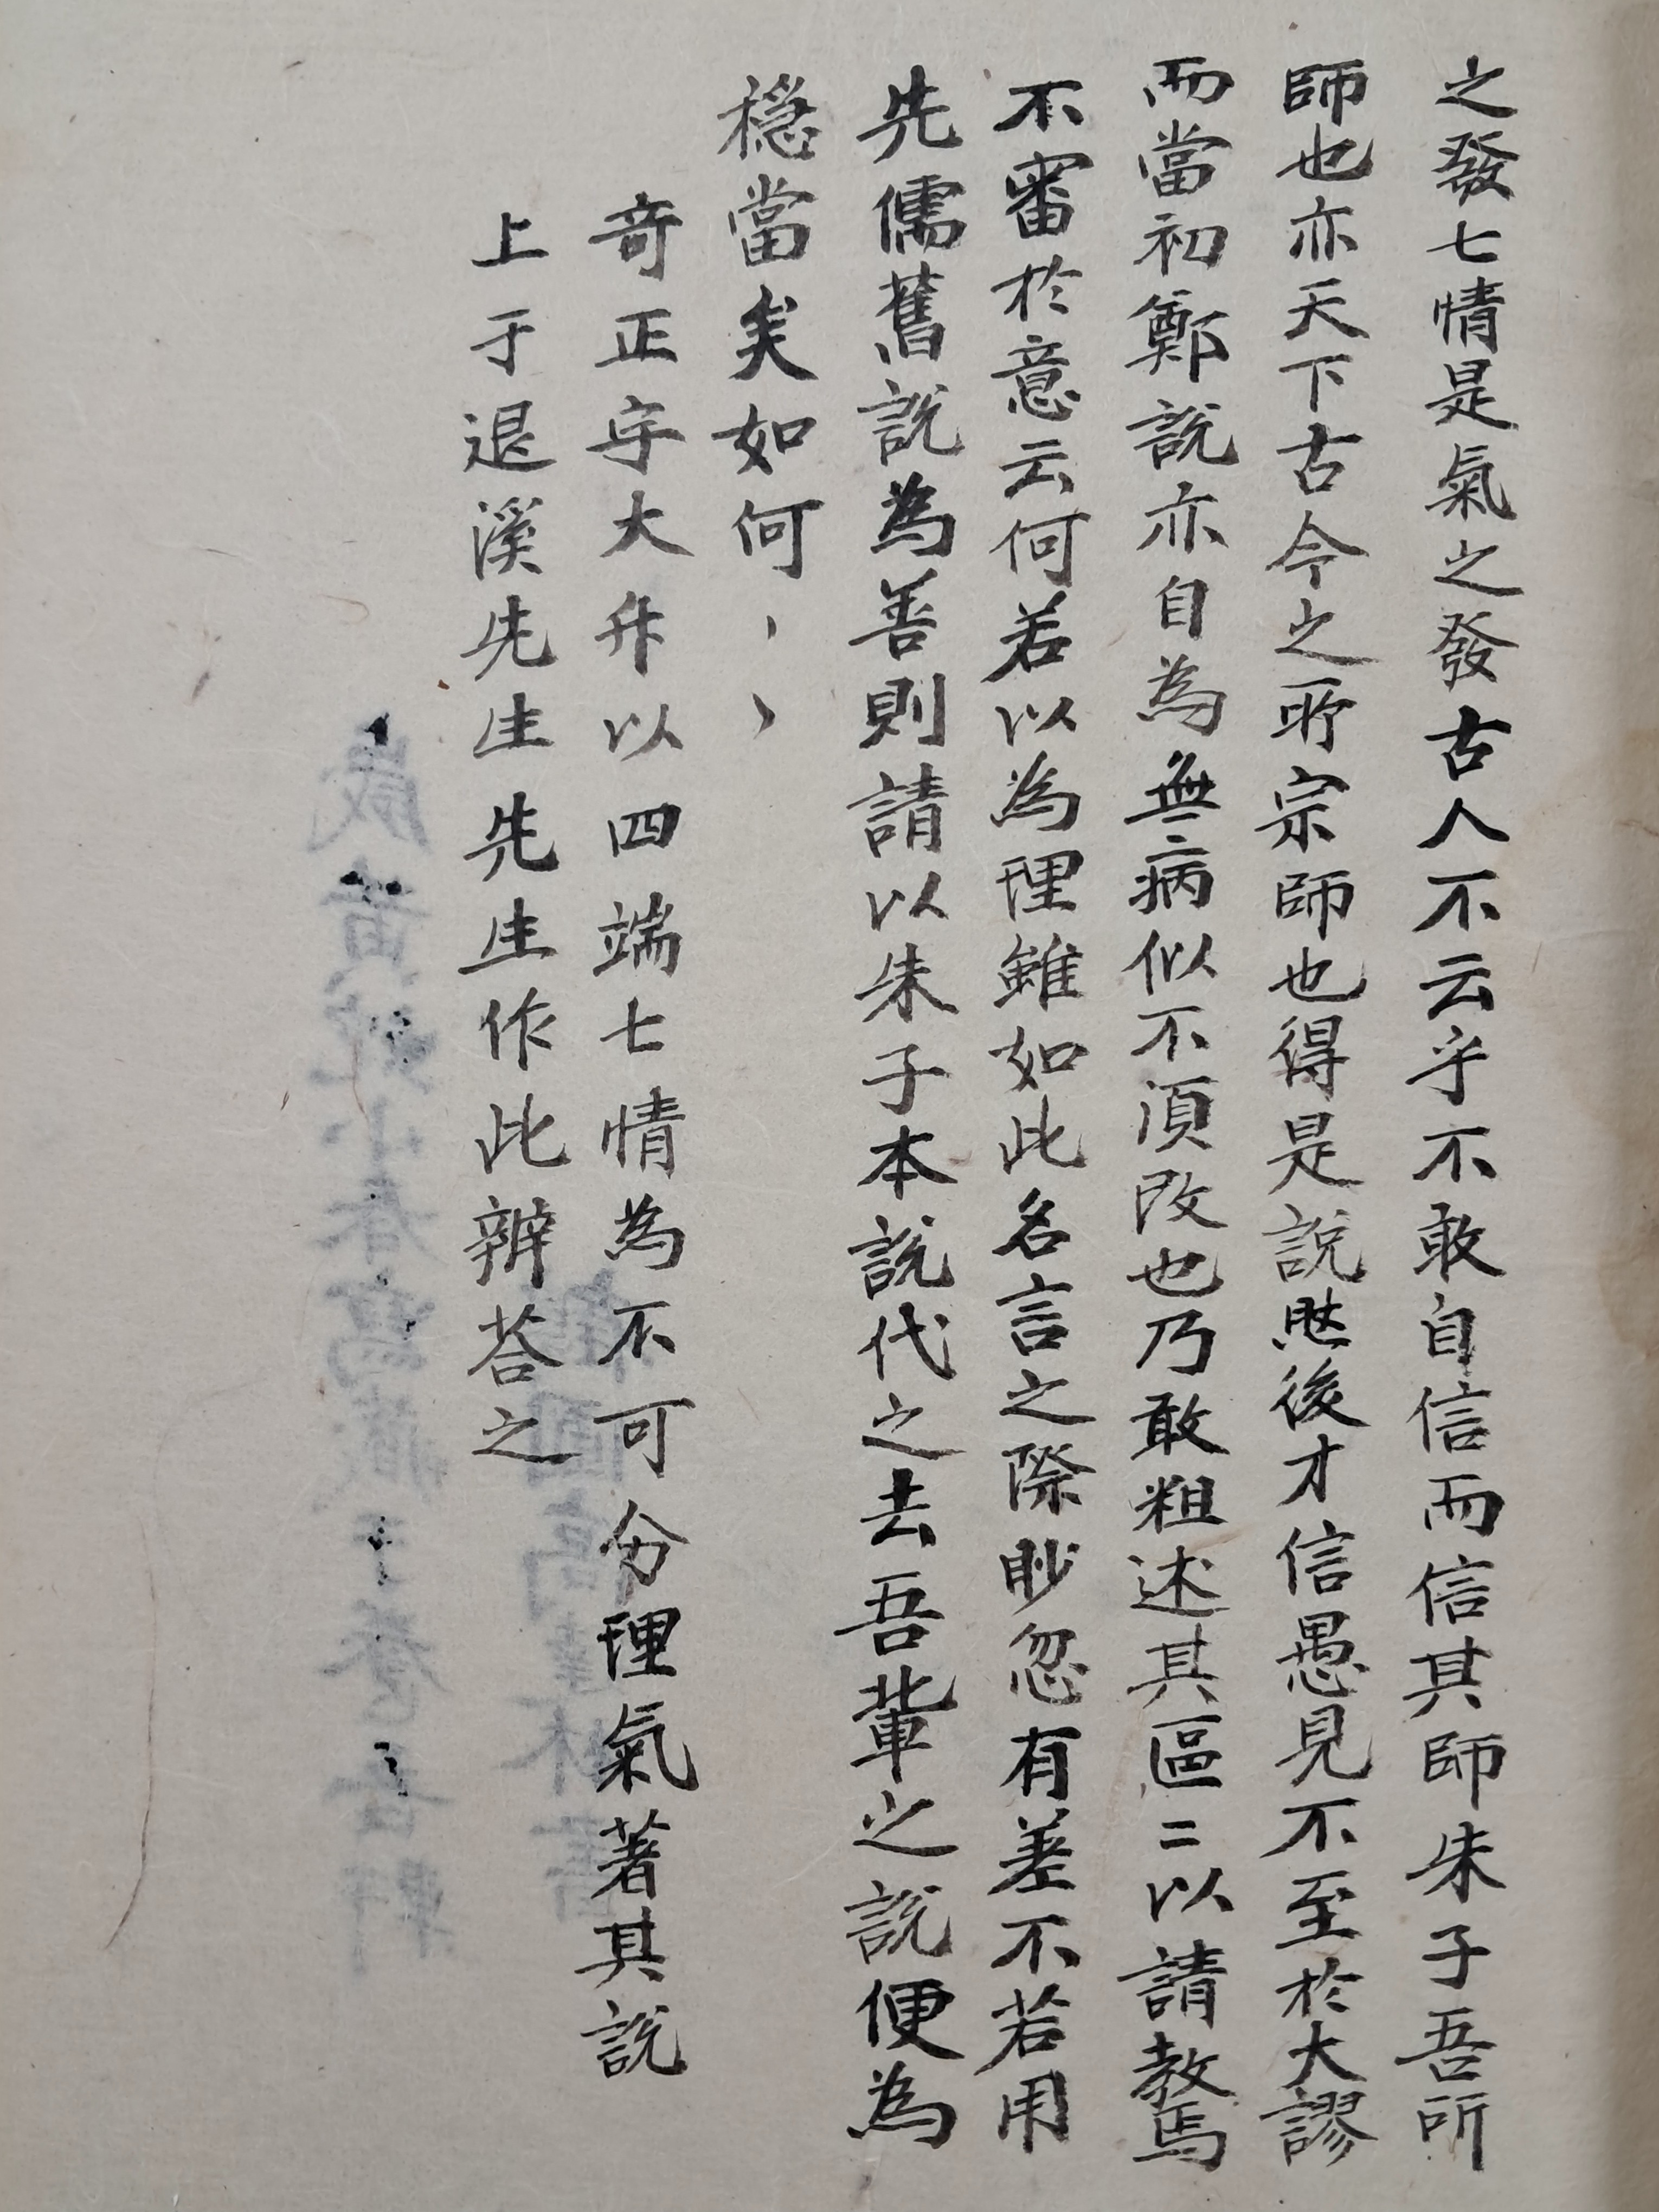 之發七情是氣之發古人不云乎不敢自信而信其師朱子吾所
師也亦天下古今之所宗師也得是說然後才信愚見不至於大謬
而當初鄭說亦自為無病似不須改也乃敢粗述其區〻以請教焉
不審於意云何若以為理雖如此名言之際眇忽有差不若用
先儒舊說為善則請以朱子本說代之去吾輩之說便為
穩當矣如何〻〻
奇正字大升以四端七情為不可分理氣著其說
上于退溪先生先生作此辨荅之